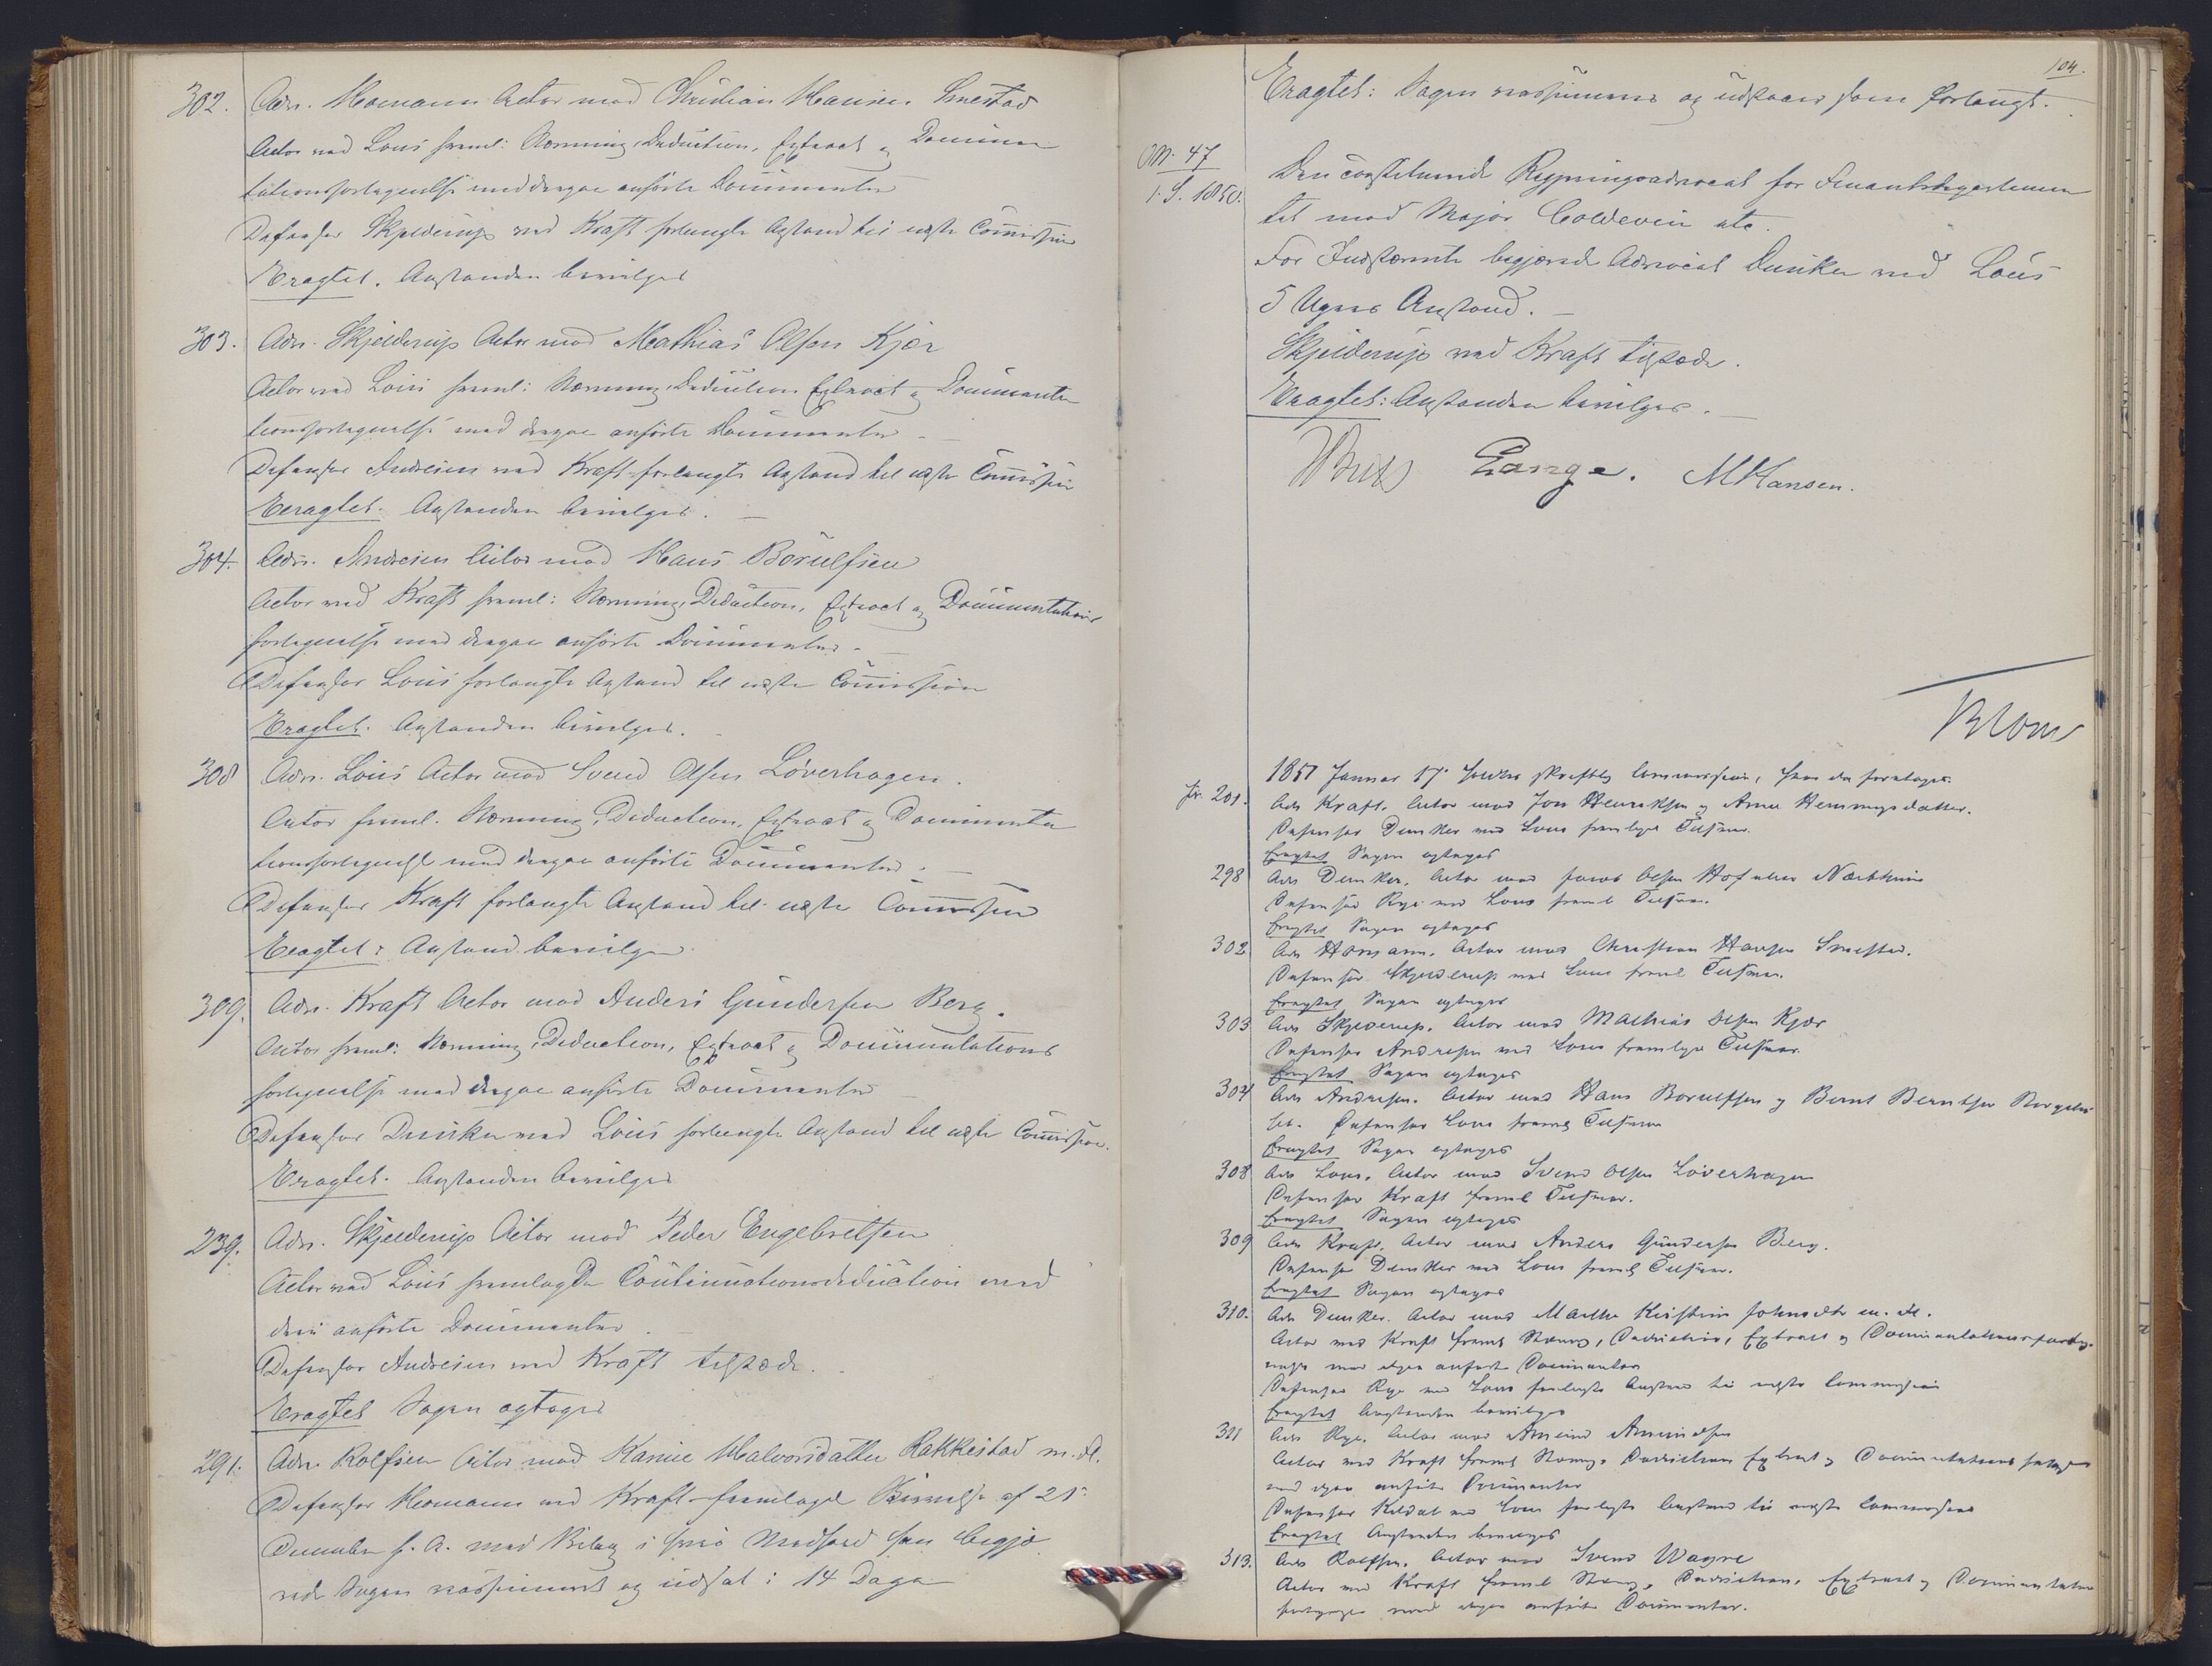 302. Adv. Homann Actor mod Christian Hansen Smestad
Actor ved Lous freml: Stævning, Deduction, Extract og Documen
tationsfortegnelse med deri anførte Documenter
Defensor Skjelderup ved Kraft forlangte Anstand til næste Commission
Eragtet. Anstanden bevilges
303. Adv. Skjelderup Actor mod Mathias Olsen Kjær
Actor ved Lous freml: Stævning, Deduction, Extract og Documenta
tionsfortegnelse med deri anførte Documenter
Defensor Andresen ved Kraft forlangte Anstand til næste Commission
Eragtet. Anstanden bevilges.
304. Adv. Andresen Actor mod Hans Borulfsen
Actor ved Kraft freml: Stævning, Deduction, Extract og Documentations
fortegnelse med deri anførte Documenter.
Defensor Lous forlangte Anstand til næste Commission
Eragtet. Anstanden bevilges.
308 Adv. Lous Actor mod Svend Olsen Løverhagen.
Actor freml. Stævning, Deduction, Extract og Documenta
tionsfortegnelse med deri anførte Documenter.
Defensor Kraft forlangte Anstand til næste Commission
Eragtet: Anstand bevilges
309. Adv. Kraft Actor mod Anders Gundersen Berg.
Actor freml: Stævning, Deduction, Extract og Documentations
fortegnelse med deri anførte Documenter
Defensor Dunker ved Lous forlangte Anstand til næste Commission.
Eragtet. Anstanden bevilges
239. Adv. Skjelderup Actor mod Peder Engebretsen
Actor ved Lous fremlagde Continuationsdeduction med
deri anførte Documenter.
Defensor Andresen ved Kraft tilstede.
Eragtet Sagen optages
291. Adv. Rolfsen Actor mod Karine Halvorsdatter Rakkestad m. fl.
Defensor Homann ved Kraft fremlagde Beviis af 21de
December f. A. med Bilag i hvis Medhold han begjæ
rede Sagen reassumeret og udsat i 14 Dage
104.
Eragtet: Sagen reassumeres og udsættes som forlangt.
O N. 47
1. S. 1850. Den constituerede Regjeringsadvocat for Finantsdepartemen
tet mod Major Coldevin etc.
For Indstævnte begjærede Advocat Dunker ved Lous
5 Ugers Anstand.
Skjelderup ved Kraft tilstede.
Eragtet: Anstanden bevilges.
Lange. M Hansen.
Blom
1851 Januar 17. holdtes skriftlig Commission, hvor da foretoges:
201. Adv Kraft, Actor mod Jon Henriksen og Anne Hemmingsdatter.
Defensor Dunker ved Lous fremlagde Tilsvar.
Eragtet Sagen optages
298 Adv Dunker, Actor mod Jacob Olsen Hof
Defensor Rye ved Lous freml Tilsvar.
Eragtet Sagen optages
302 Adv Homann, Actor mod Christian Hansen Smestad.
Defensor Skjelderup ved Lous freml Tilsvar.
Eragtet Sagen optages
303 Adv Skjelderup, Actor mod Mathias Olsen Kjær
Defensor Andresen ved Lous fremlagde Tilsvar.
Eragtet Sagen optages
304 Adv Andresen, Actor mod Hans Borulfsen og Bernt Berntsen
Defensor Lous freml Tilsvar
Eragtet Sagen optages
308 Adv Lous, Actor mod Svend Olsen Løverhagen
Defensor Kraft freml Tilsvar.
Eragtet Sagen optages
309 Adv Kraft, Actor mod Anders Gundersen Berg.
Defensor Dunker ved Lous freml Tilsvar.
Eragtet Sagen optages
310. Adv Dunker, Actor mod Marthe Kirstine m. fl.
Actor ved Kraft freml Stævning, Deduction, Extract og Documentationsforteg-
nelse med deri anførte Documenter
Defensor Rye ved Lous forlangte Anstand til næste Commission
Eragtet Anstanden bevilges
311 Adv Rye, Actor mod Amund Amundsen
Actor ved Kraft freml Stævning, Deduction, Extract og Documentations
med deri anførte Documenter
Defensor Kildal ved Lous forlangte Anstand til næste Commission
Eragtet Anstanden bevilges
313. Adv Rolfsen, Actor mod Svend Wagne
Actor ved Kraft freml Stævning, Deduction, Extract og Documentations
fortegnelse med deri anførte Documenter.